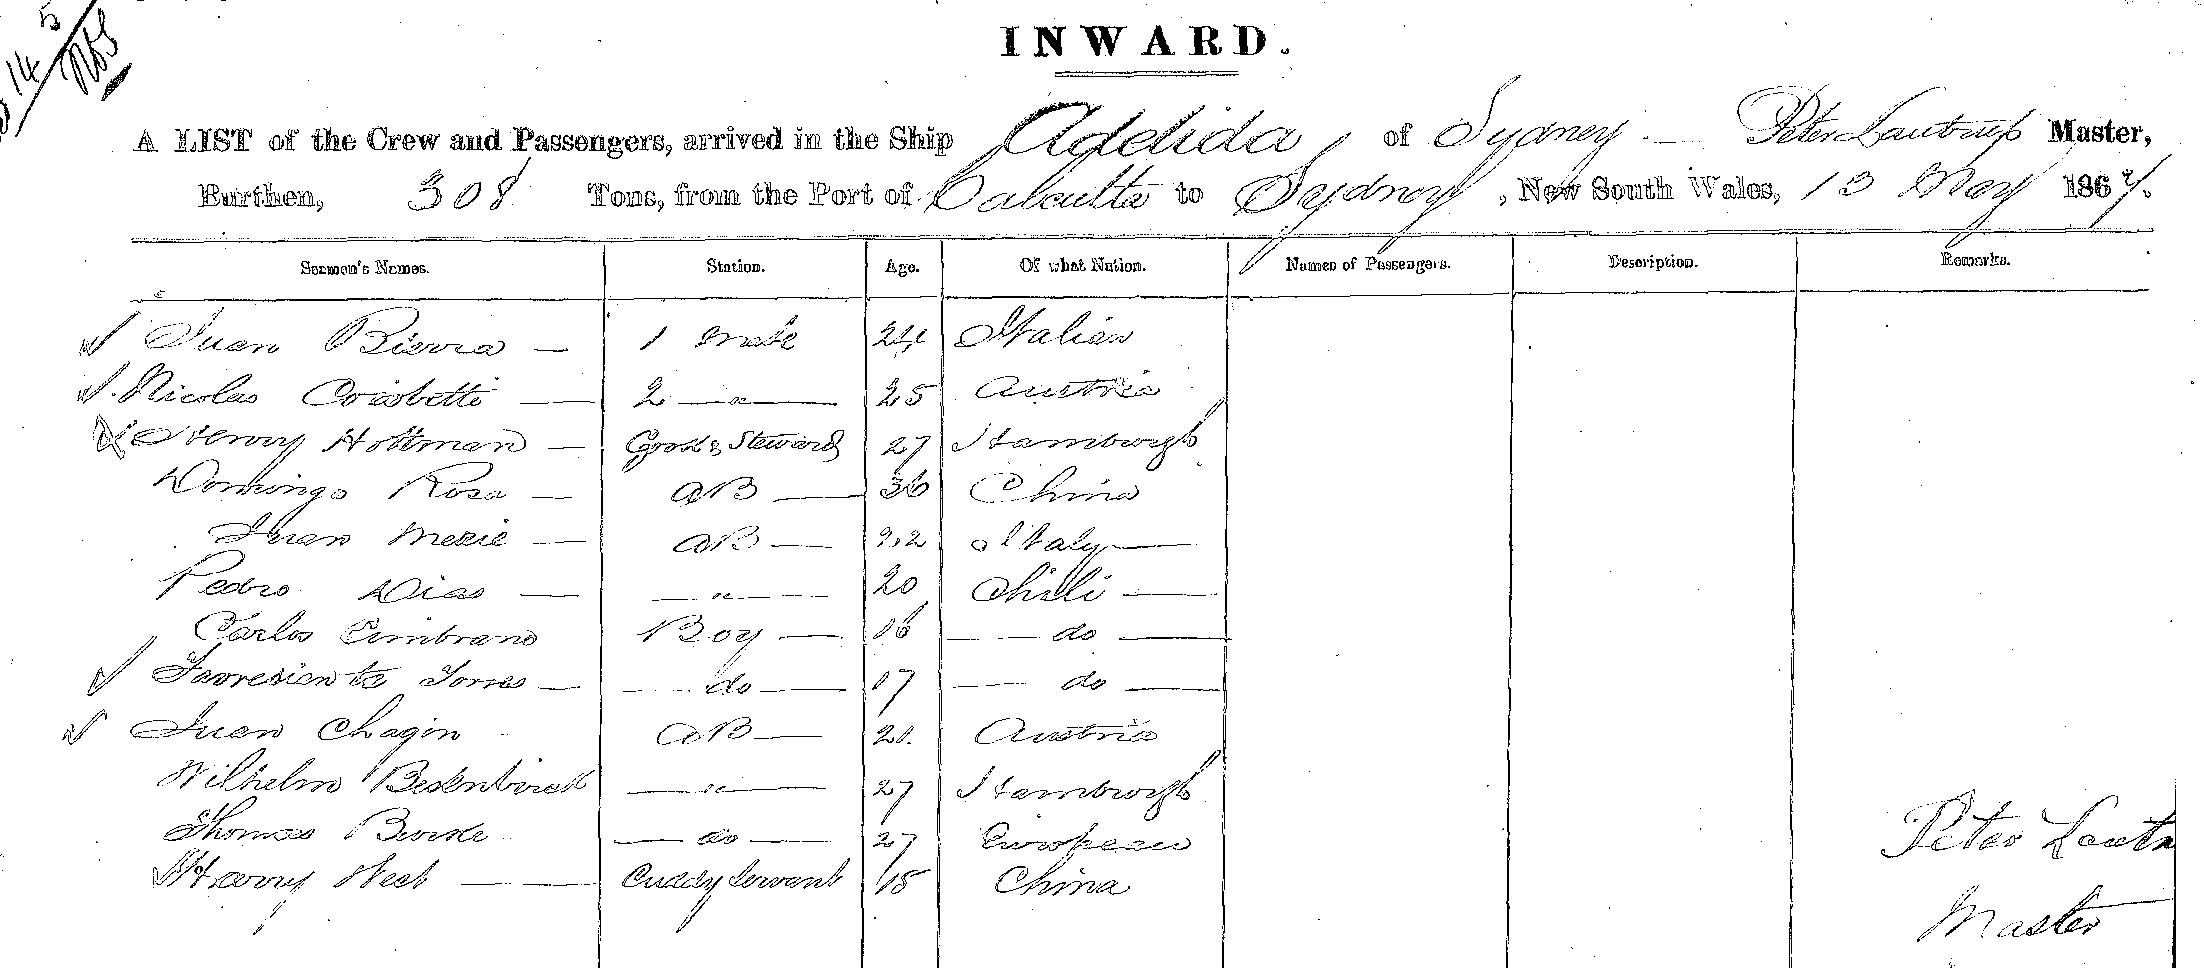 14/5
INWARD.
A LIST of the Crew and Passengers, arrived in the Ship Adelida of Sydney Peter Lautrup Master,
Burthen, 308 Tons, from the Port of Calcutta to Sydney, New South Wales, 13 May 1867.
Seamen's Names. Station. Age. Of what Nation. Names of Passengers. Description. Remarks.
Juan Bierra — 1 mate 24 Italian
Nicolas — 2 — " — 25 Austria
Henry Hottman — Cook & Steward 27 Hamburgh
Domingo Rosa — AB — 36 China
Juan — AB — Italy —
Pedro Dias — — " — 20 Chili —
Carlos Cimbrano Boy — 16 — do —
Torres — — do — 17 — do —
Juan Chagin AB — 20 Austria
Wilhelm — " — 27 Hamburgh
Thomas Burke — do — 27 European
Harry West — Cuddy Servant 18 China
Peter
Master